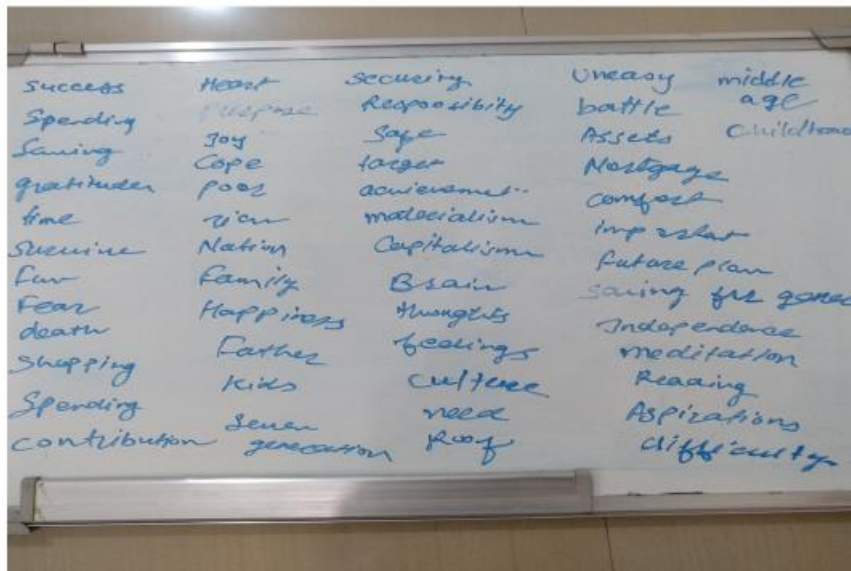 success
Spending
Saving
gratitude
time
Survive
Fun
Fear
death
Shopping
Spending
contribution
Heart
Purpose
Joy
Cope
poor
rich
Nation
Family
Happiness
Father
Kids
Seven
generation
Securing
Responsibity
Safe
target
achievement..
materialism
Capitalism
Brain
thoughts
feelings
culture
need
Roof
Uneasy
battle
Assets
Mortgage
comfort
future plan
Saving for
Independence
meditation
Reading
Aspirations
difficulty
middle
age